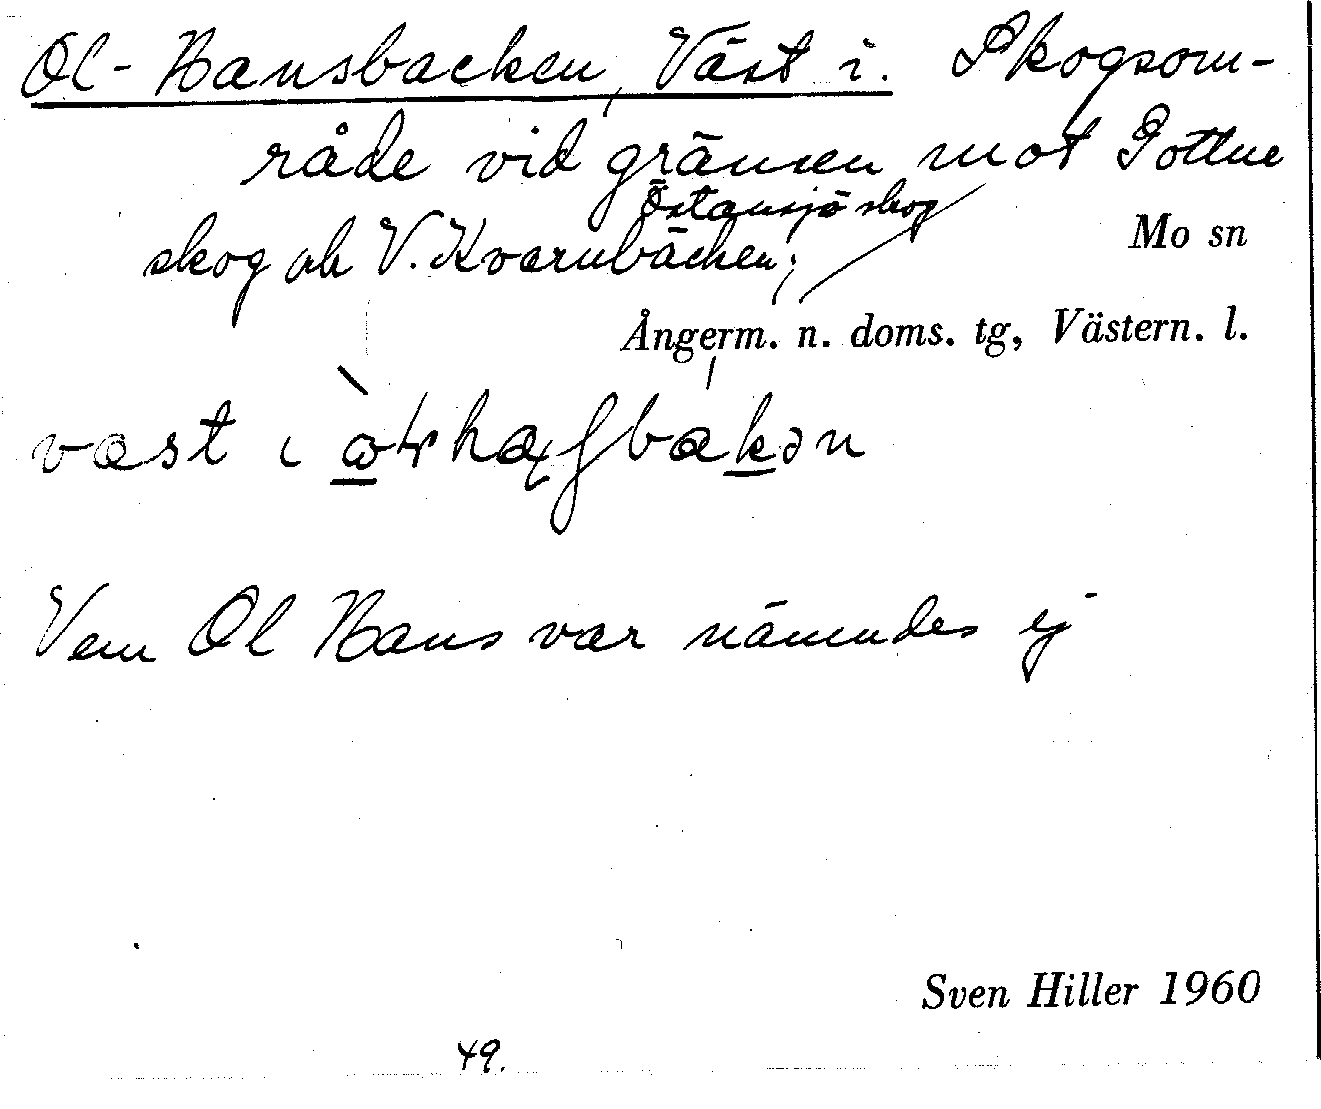 Ol-Hansbacken, Väst i. Skogsom-
råde vid gränsen mot Gottne
Östansjö skog
skog ok V. Kvarnbäcken;
Mo sn
Ångerm. n. doms. tg, Västern. l.
væst ɩ
Vem Ol Hans var nämndes ej
Sven Hiller 1960
49.